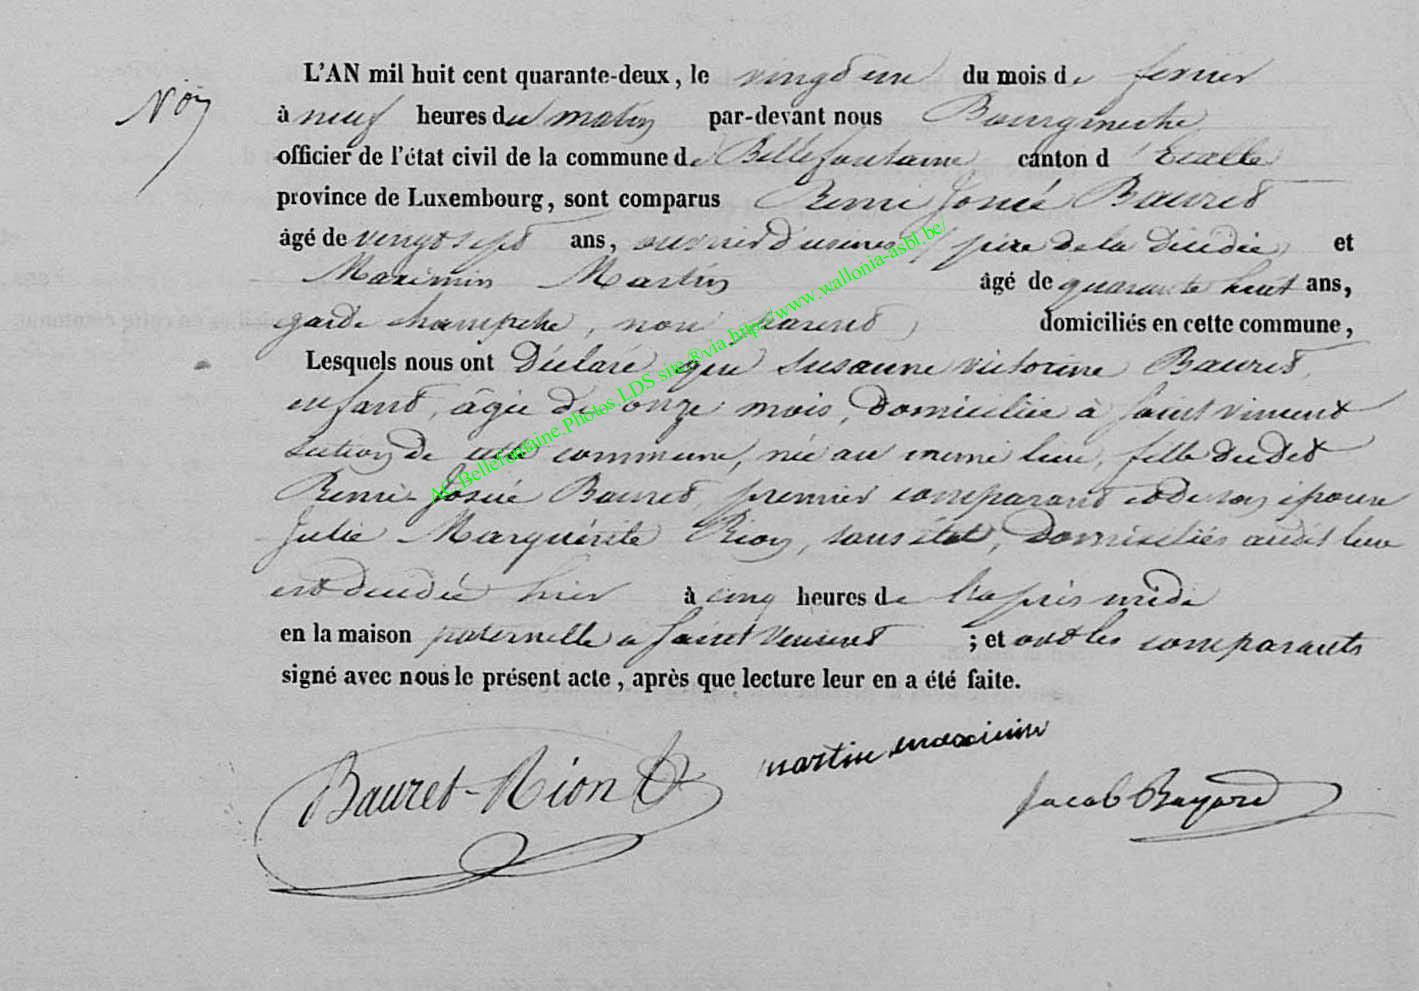 L'AN mil huit cent quarante-deux, le vingt un du mois de fevrier
à neuf heures du matin par-devant nous Bourgmestre
officier de l'état civil de la commune de Bellefontaine canton d'Etalle
province de Luxembourg, sont comparus Remi Josué Bauret
âgé de vingt sept ans, ouvrier d'usines, père de la décédée, et
Maximin Martin âgé de quarante huit ans,
garde champetre, non parent, domiciliés en cette commune,
Lesquels nous ont Déclaré que Susanne victorine Bauret,
enfant, âgée de onze mois, domiciliée à Saint vincent
section de cette commune, née au meme lieu, fille dudit
Remi Josué Bauret, premier comparant et de son épouse
Julie Marguérite Rion, sans état, domiciliés audit lieu
est décédée hier à cinq heures de l'après midi
en la maison paternelle a Saint Vincent ; et ont les comparants
signé avec nous le présent acte, après que lecture leur en a été faite.
Bauret-Rion
martin maximin
Jacob Bayard
AC Bellefontaine.Photos LDS site & via http://www.wallonia-asbl.be/